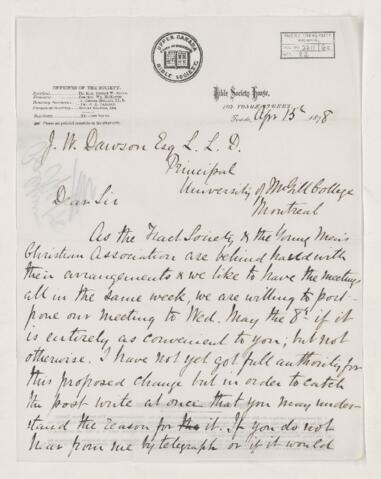 UPPER CANADA
BIBLE SOCIETY
OFFICERS OF THE SOCIETY.
Bible Society House,
102 YONGE STREET,
Toronto, Apr 15th 1878
J. W. Dawson Esq L. L. D.
Principal
University of McGill College
Montreal
Dear Sir
As the Tract Society & the Young Men's
Christian Association are behind hand with
their arrangements & we like to have the meetings
all in the same week, we are willing to post-
pone our meeting to Wed. May the 8th if it
is entirely as convenient to you; but not
otherwise. I have not yet got full authority for
this proposed change but in order to catch
the post write at once that you may under-
stand the reason for it. If you do not
hear from me by telegraph or if it would